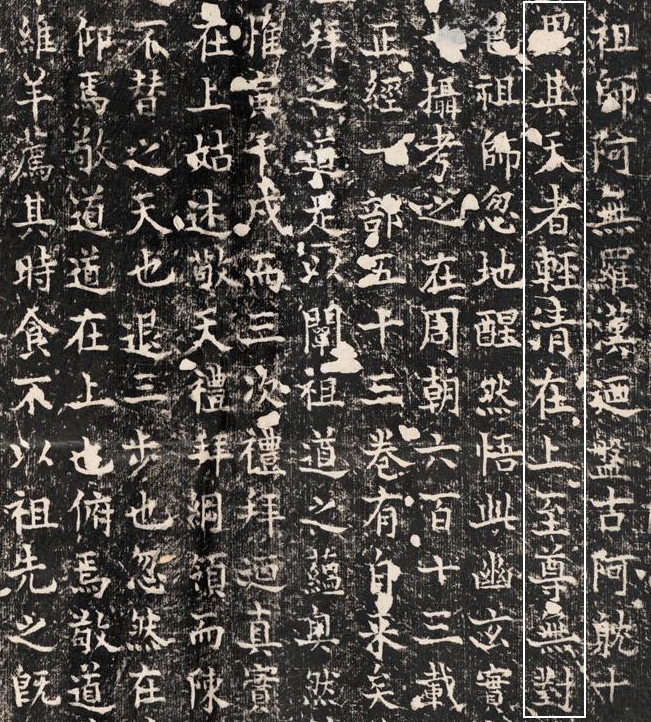 祖師阿無羅漢迺盤古阿躭十
思其天者輕清在上至尊無對
祖師忽地醒然悟此幽玄實
攝考之在周朝六百十三載
正經一部五十三卷有自來矣
拜之道足以闡祖道之蘊奧然
惟寅午戌而三次禮拜迺真實
在上姑述敬天禮拜綱領而陳
不替之天也退三步也忽然在
仰焉敬道道在上也俯焉敬道
維羊薦其時食不以祖先之旣